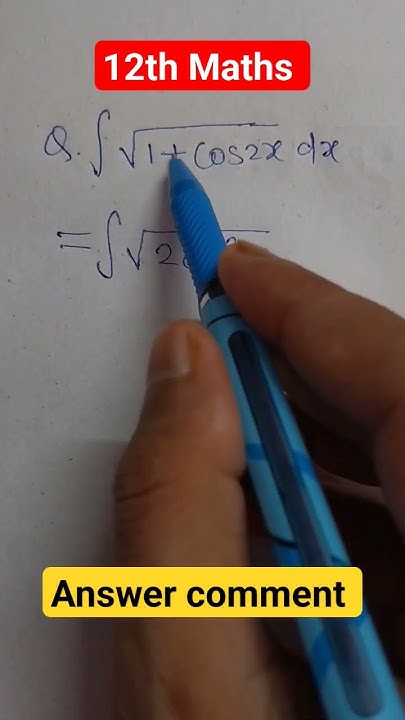 12th Maths
Q. ∫ √1+cos2x dx
= ∫ √2
Answer comment